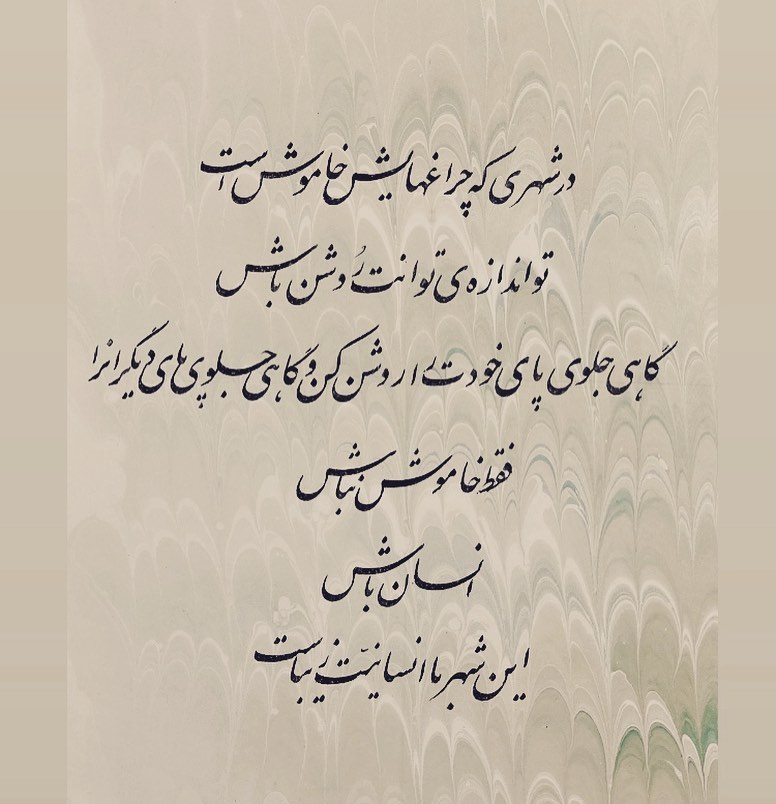 در شهری که چراغهایش خاموش است
تو اندازه‌ی توانت رُوشن باش
گاهی جلوی پای خودت را روشن کن و گاهی جلوی پای دیگرانْرا
فقط خاموش نباش
انسان باش
این شهر با انسانیّت زیباست